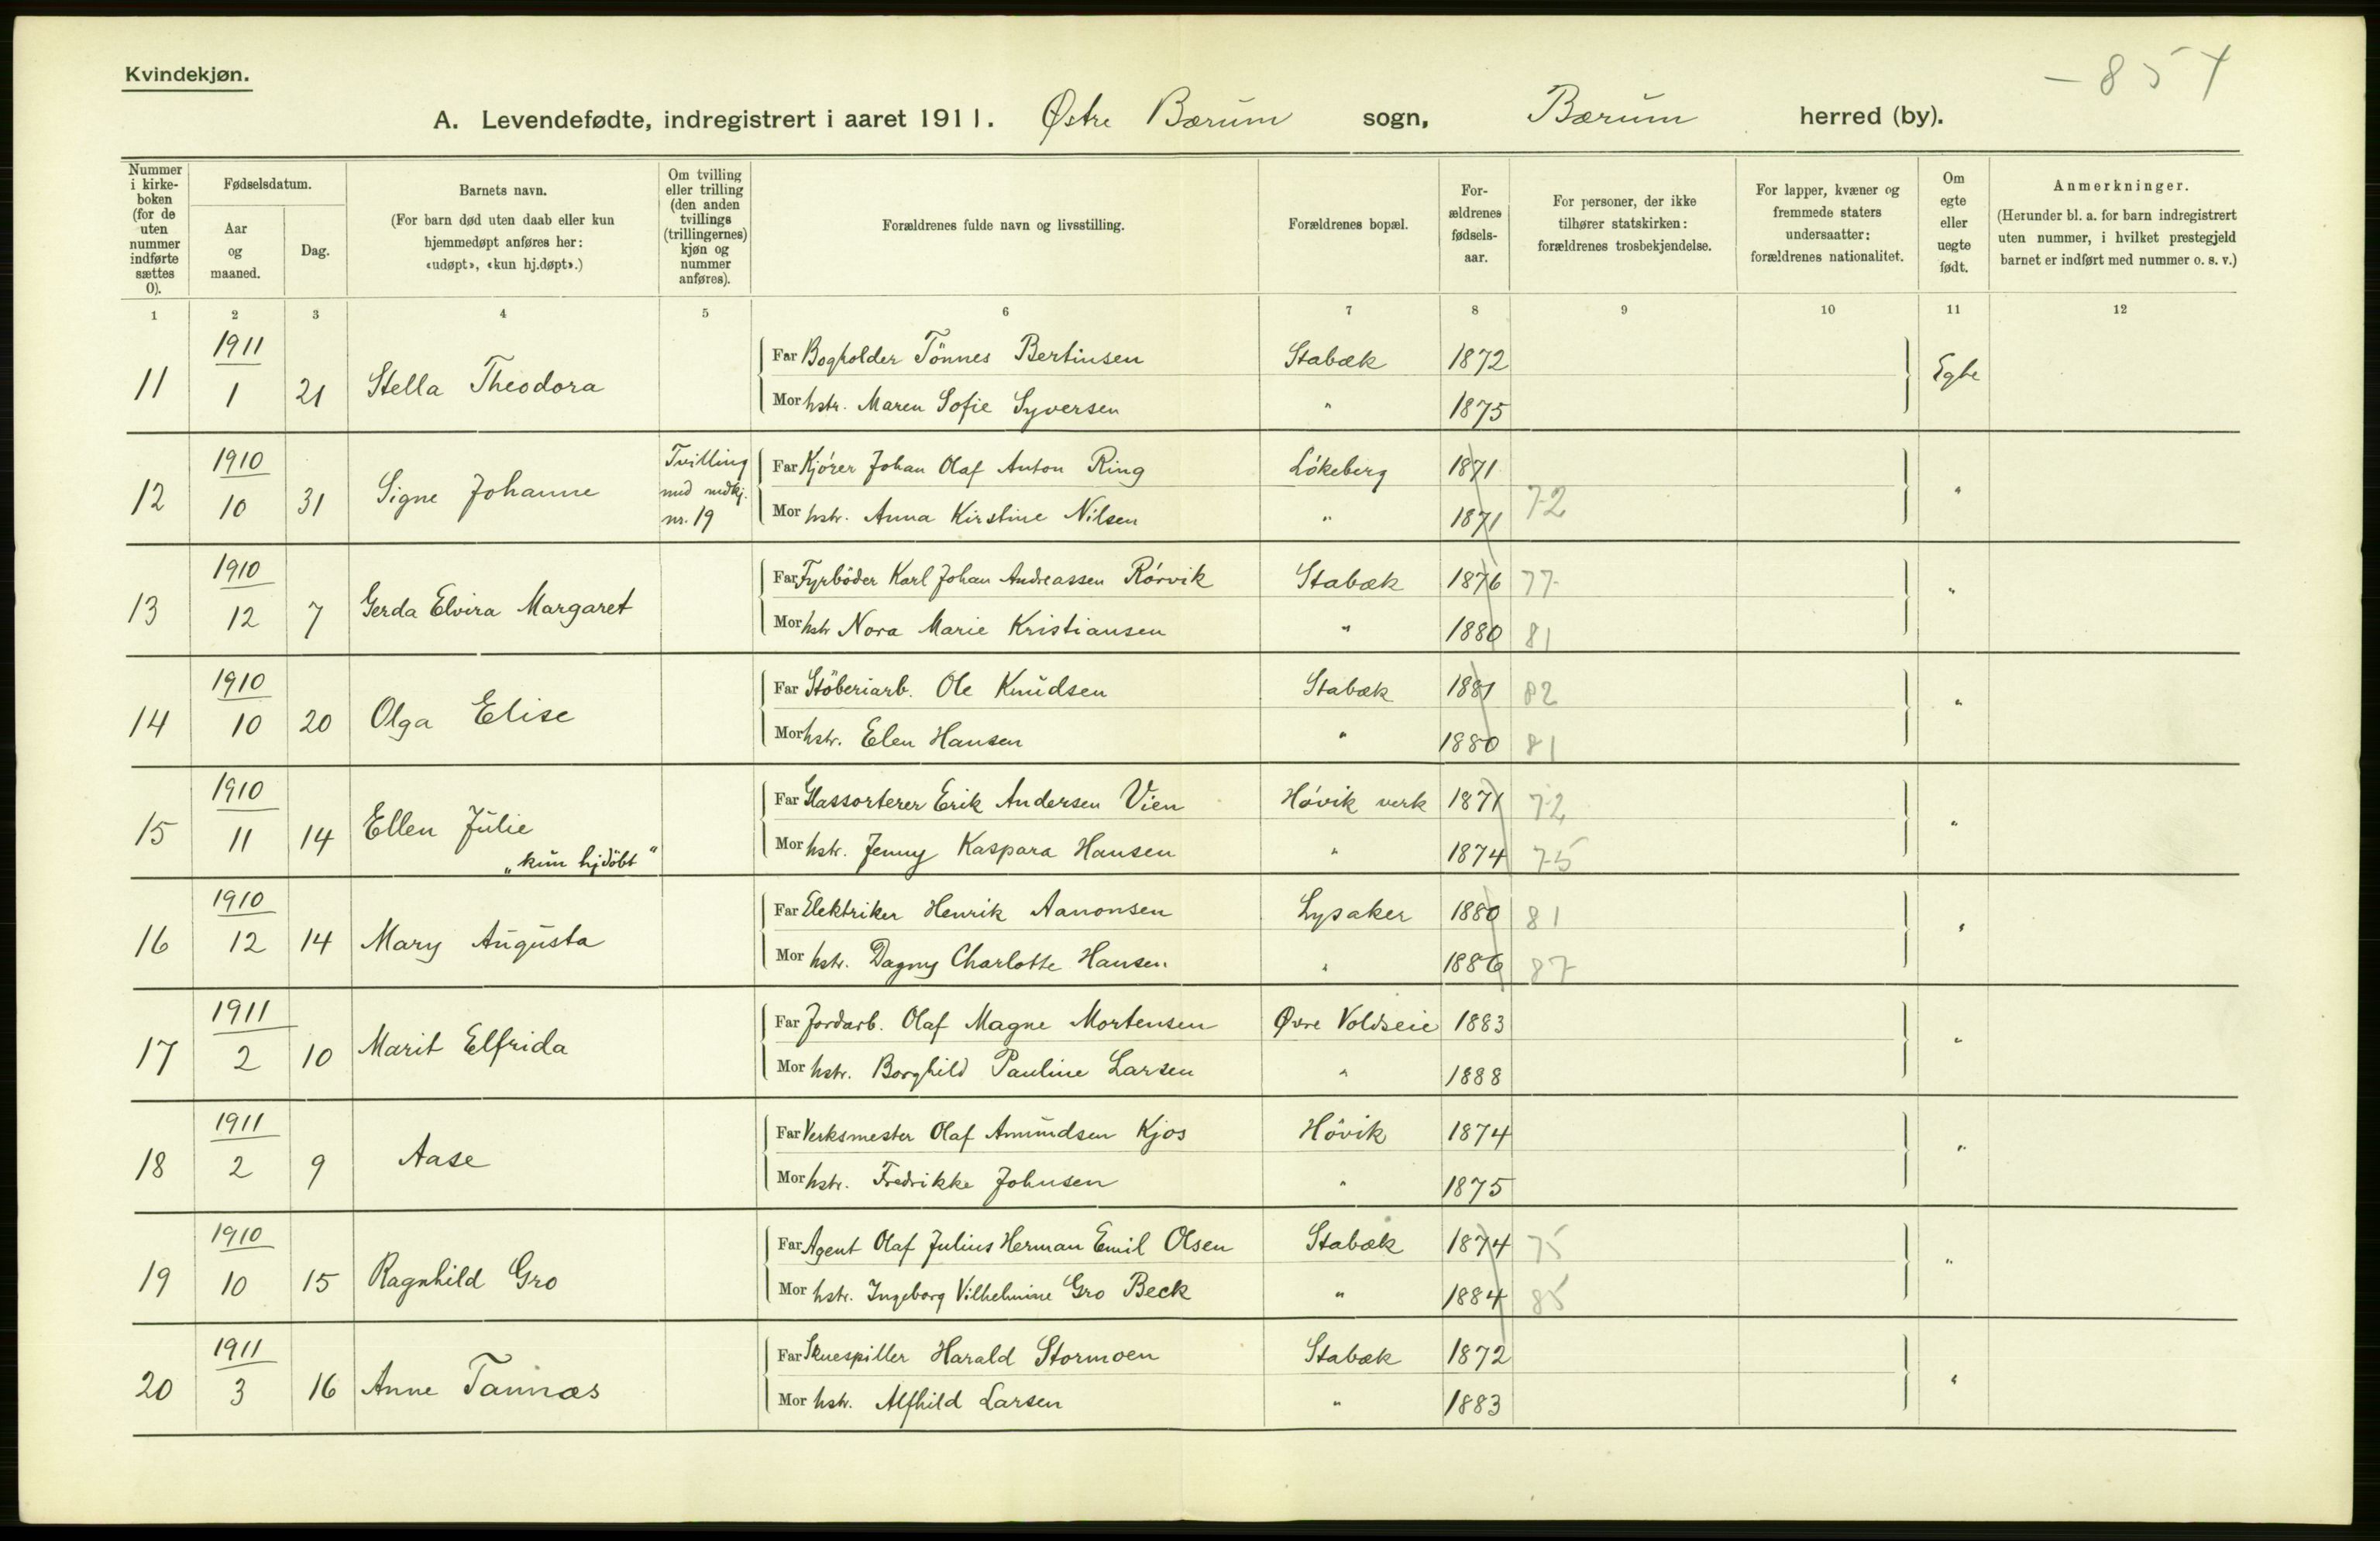 Kvindekjøn.
- 854
A. Levendefødte, indregistrert i aaret 1911. Østre Bærum sogn, Bærum herred (by).
Nummer i kirke-boken (for de uten nummer indførte sættes 0).
Fødselsdatum.
Aar og maaned.
Dag.
Barnets navn.
(For barn død uten daab eller kun hjemmedøpt anføres her: «udøpt», «kun hj.døpt».)
Om tvilling eller trilling (den anden tvillings (trillingernes) kjøn og nummer anføres).
Forældrenes fulde navn og livsstilling.
Forældrenes bopæl.
For-ældrenes fødsels-aar.
For personer, der ikke tilhører statskirken: forældrenes trosbekjendelse.
For lapper, kvæner og fremmede staters undersaatter: forældrenes nationalitet.
Om egte eller uegte født.
Anmerkninger.
(Herunder bl. a. for barn indregistrert uten nummer, i hvilket prestegjeld barnet er indført med nummer o. s. v.)
1 2 3 4 5 6 7 8 9 10 11 12
11 1911 1 21 Stella Theodora Far Bogholder Tönnes Bertinsen Stabæk 1872 Egte
Mor hstr. Maren Sofie Syversen " 1875
12 1910 10 31 Signe Johanne Tvilling med mdkj. nr. 19 Far Kjórer Johan Olaf Anton Ring Lókeberg 1871 "
Mor hstr. Anna Kirstine Nilsen " 1871 72
13 1910 12 7 Gerda Elvira Margaret Far Fyrböder Karl Johan Andreassen Rórvik Stabæk 1876 77 "
Mor hstr Nora Marie Kristiansen " 1880 81
14 1910 10 20 Olga Elise Far Stöberiarb. Ole Knudsen Stabæk 1881 82 "
Mor hstr. Elen Hansen " 1880 81
15 1910 11 14 Ellen Julie „kun hjdöbt" Far Glassorterer Erik Andersen Vien Hóvik verk 1871 72 "
Mor hstr. Jenny Kaspara Hansen " 1874 75
16 1910 12 14 Mary Augusta Far Elektriker Henrik Aanonsen Lysaker 1880 81 "
Mor hstr. Dagny Charlotte Hansen " 1886 87
17 1911 2 10 Marit Elfrida Far Jordarb. Olaf Magne Mortensen Øvre Voldseie 1883 "
Mor hstr. Borghild Pauline Larsen " 1888
18 1911 2 9 Aase Far Verksmester Olaf Amundsen Kjos Hövik 1874 "
Mor hstr. Fredrikke Johnsen " 1875
19 1910 10 15 Ragnhild Gro Far Agent Olaf Julius Herman Emil Olsen Stabæk 1874 75 "
Mor hstr. Ingeborg Vilhelmine Gro Beck " 1884 85
20 1911 3 16 Anne Tannæs Far Skuespiller Harald Stormoen Stabæk 1872 "
Mor hstr. Alfhild Larsen " 1883